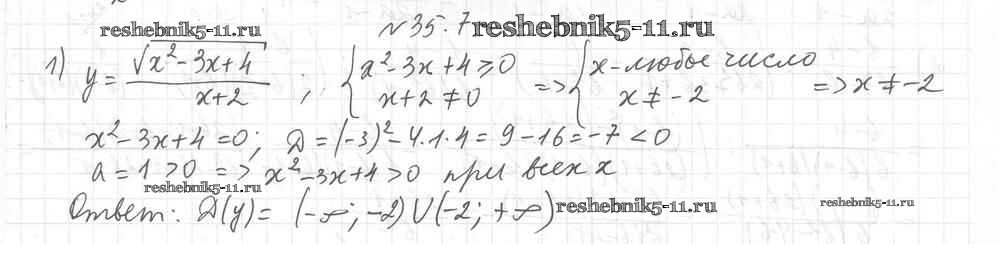 reshebnik5-11.ru
№35.7 reshebnik5-11.ru
1) y = √(x² - 3x + 4) / (x + 2) ; { x² - 3x + 4 ⩾ 0 => { x - любое число => x ≠ -2
x + 2 ≠ 0 x ≠ -2
x² - 3x + 4 = 0; D = (-3)² - 4·1·4 = 9 - 16 = -7 < 0
a = 1 > 0 => x² - 3x + 4 > 0 при всех x
reshebnik5-11.ru
Ответ: D(y) = (-∞; -2) ∪ (-2; +∞) reshebnik5-11.ru reshebnik5-11.ru